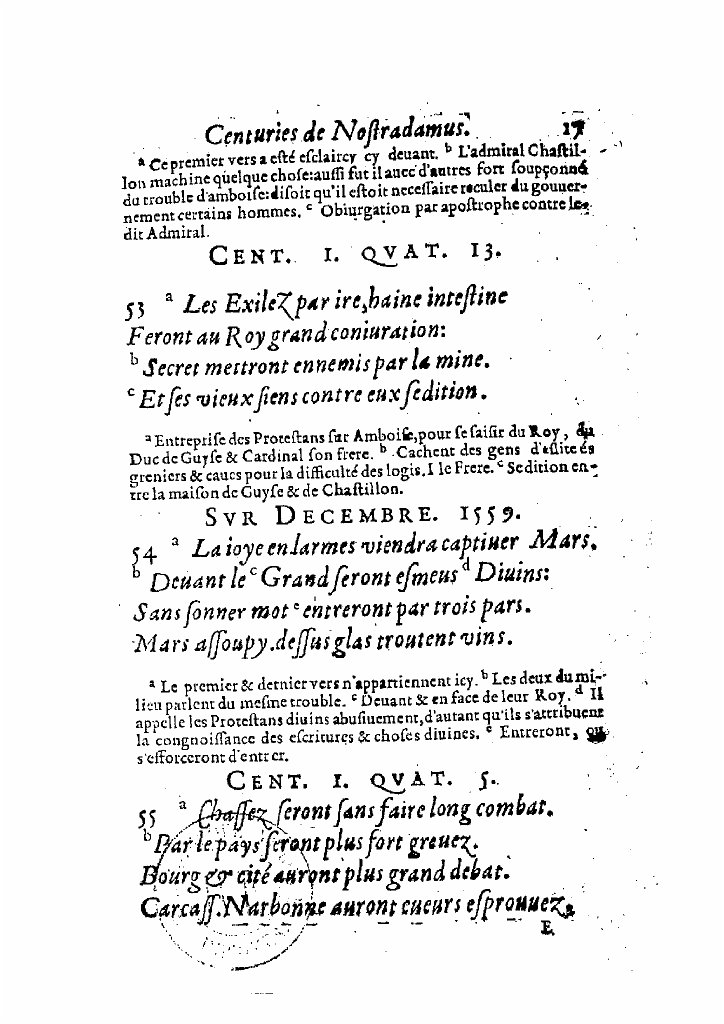 Centuries de Noſtradamus. 17
a Ce premier vers a eſté eſclaircy cy deuant. b L'admiral Chaſtil-
lon machine quelque choſe: auſſi fut il auec d'autres fort ſoupçonné
du trouble d'amboiſe: diſoit qu'il eſtoit neceſſaire reculer du gouuer-
nement certains hommes. c Obiurgation par apoſtrophe contre le
dit Admiral.
CENT. I. QVAT. 13.
53 a Les Exilez par ire, haine inteſtine
Feront au Roy grand coniuration:
b Secret mettront ennemis par la mine.
c Et ſes vieux ſiens contre eux ſedition.
a Entrepriſe des Proteſtans ſur Amboiſe, pour ſe ſaiſir du Roy, du
Duc de Guyſe & Cardinal ſon frere. b Cachent des gens d'eſlite és
greniers & caues pour la difficulté des logis. I le Frere. c Sedition en-
tre la maiſon de Guyſe & de Chaſtillon.
SVR DECEMBRE. 1559.
54 a La ioye en larmes viendra captiuer Mars.
b Deuant le c Grand ſeront eſmeus d Diuins:
Sans ſonner mot e entreront par trois pars.
Mars aſſoupy. deſſus glas troutent vins.
a Le premier & dernier vers n'appartiennent icy. b Les deux du mi-
lieu parlent du meſme trouble. c Deuant & en face de leur Roy. d Il
appelle les Proteſtans diuins abuſiuement, d'autant qu'ils s'attribuent
la congnoiſſance des eſcritures & choſes diuines. e Entreront, ou
s'efforceront d'entrer.
CENT. I. QVAT. 5.
55 a Chaſſez ſeront ſans faire long combat.
b Par le pays ſeront plus fort greuez.
Bourg & cité auront plus grand debat.
Carcaſſ. Narbonne auront cueurs eſprouuez,
E